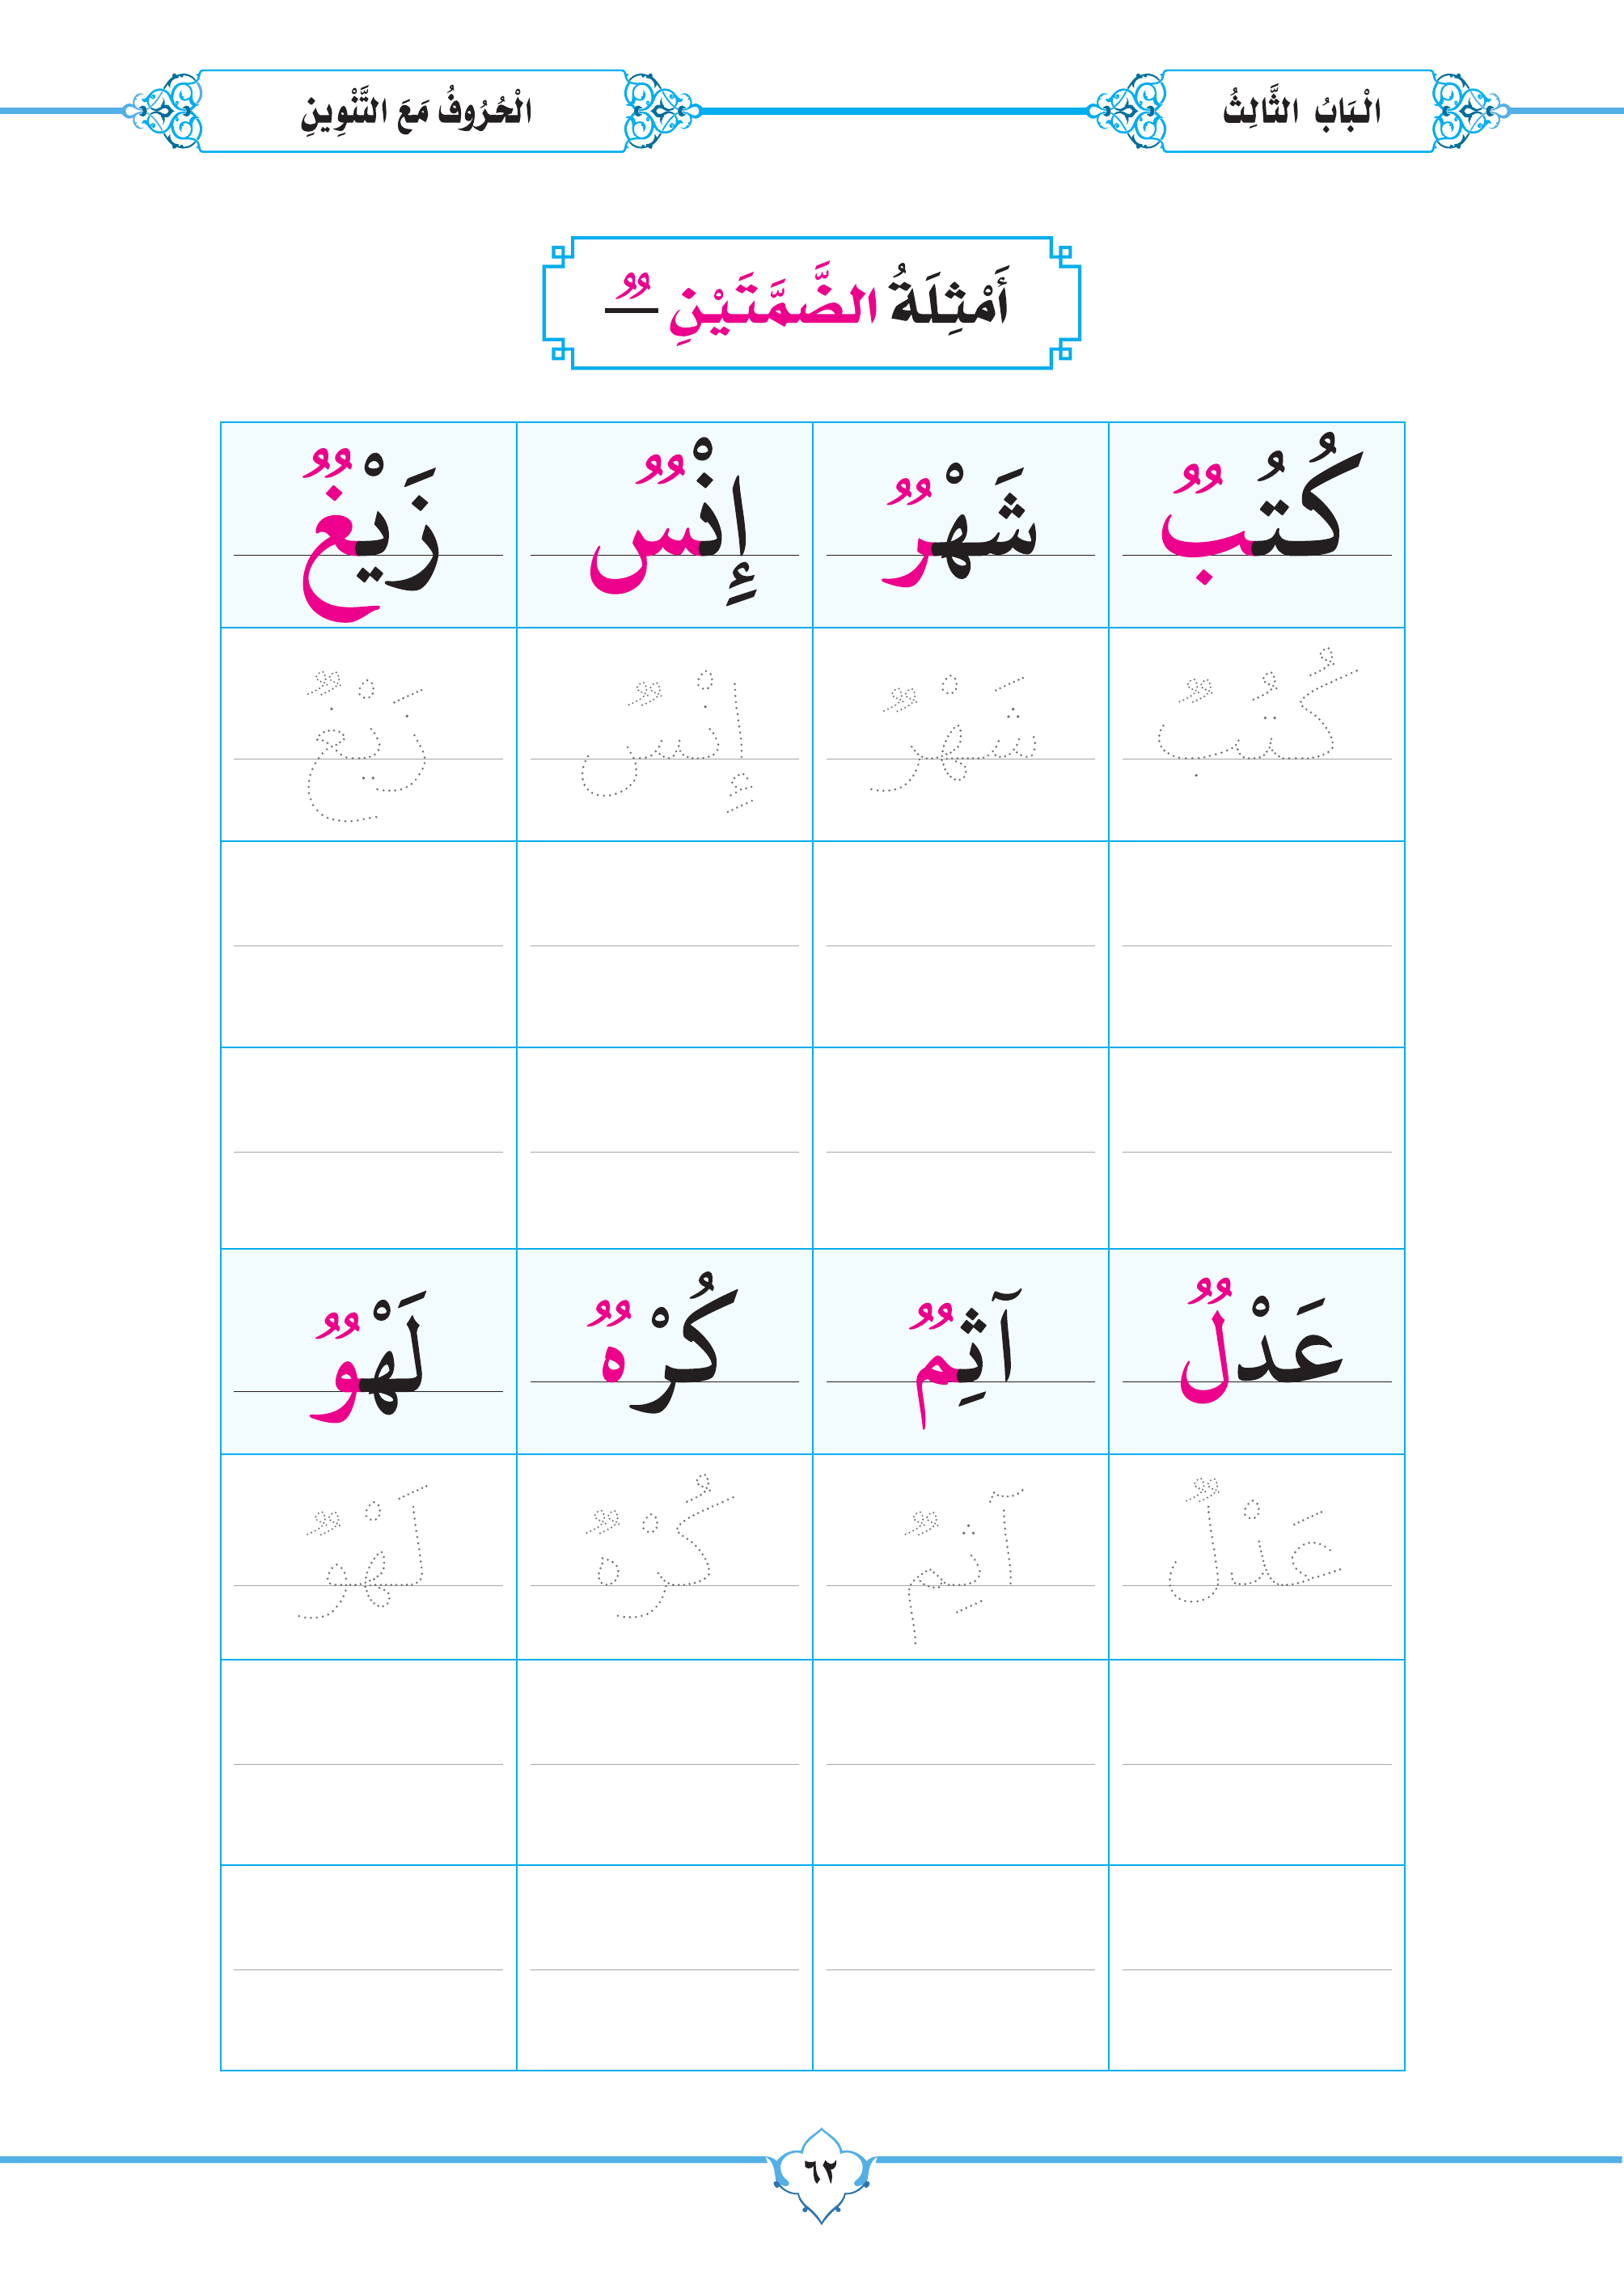 الْبَابُ الثَّالِثُ
الْحُرُوفُ مَعَ التَّنْوِينِ
أَمْثِلَةُ الضَّمَّتَيْنِ ـٌـ
كُتُبٌ شَهْرٌ إِنْسٌ زَيْغٌ
كُتُبٌ شَهْرٌ إِنْسٌ زَيْغٌ
عَدْلٌ آثِمٌ كُرْهٌ لَهْوٌ
عَدْلٌ آثِمٌ كُرْهٌ لَهْوٌ
٦٢